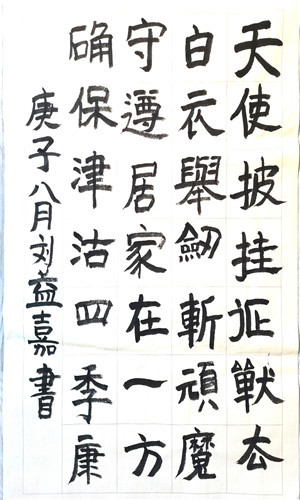 天使披挂征戰去
白衣舉劔斬頑魔
守遵居家在一方
确保津沽四季康
庚子八月刘益嘉書